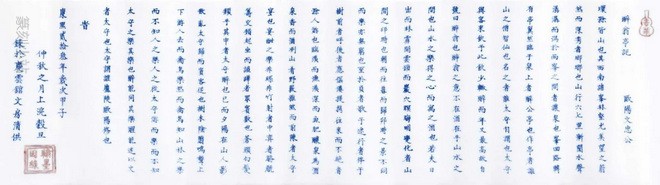 醉翁亭記
歐陽文忠公
環滁皆山也其西南諸峯林壑尤美望之蔚
然而深秀者瑯琊也山行六七里漸聞水聲
潺潺而瀉於兩峯之間者釀泉也峯回路轉
有亭翼然臨于泉上者醉翁亭也作亭者誰
山之僧智仙也名之者誰太守自謂也太守
與客來飲于此飲少輒醉而年又最高故自
號曰醉翁也醉翁之意不在酒在乎山水之
間也山水之樂得之心而寓之酒也若夫日
出而林霏開雲歸而巖穴暝晦明變化者山
間之也朝而往暮而歸四時之景不同
而樂亦無窮也至於負者歌于途行者休于
樹前者呼後者應傴僂提攜往來而不絕者
滁人遊也臨溪而漁溪深而魚肥釀泉為酒
泉香而酒洌山肴野蔌雜然而前陳者太守
宴也宴酣之樂非絲非竹射者中弈者勝觥
籌交錯起坐而諠譁者眾賓歡也蒼顏白髮
頹乎其中者太守醉也已而夕陽在山人影
散亂太守歸而賓客從也樹林陰翳鳴聲上
下遊人去而禽鳥樂也然而禽鳥知山林之樂
而不知人之樂人知從太守遊而樂而不知
太守之樂其樂也醉能同其樂醒能述以文
者太守也太守謂誰廬陵歐陽修也
旹
康熙貳拾叁年歲次甲子
仲秋之月上浣穀旦
錄於館文房清供